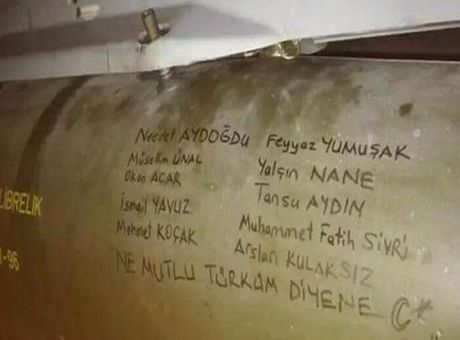 Necdet AYDOĞDU
Müsellim ÜNAL
Okan ACAR
İsmail YAVUZ
Mehmet KOÇAK
Feyyaz YUMUŞAK
Yalçın NANE
Tansu AYDIN
Muhammet Fatih SİVRİ
Arslan KULAKSIZ
NE MUTLU TÜRKÜM DİYENE C*
LIBRELIK
1-96